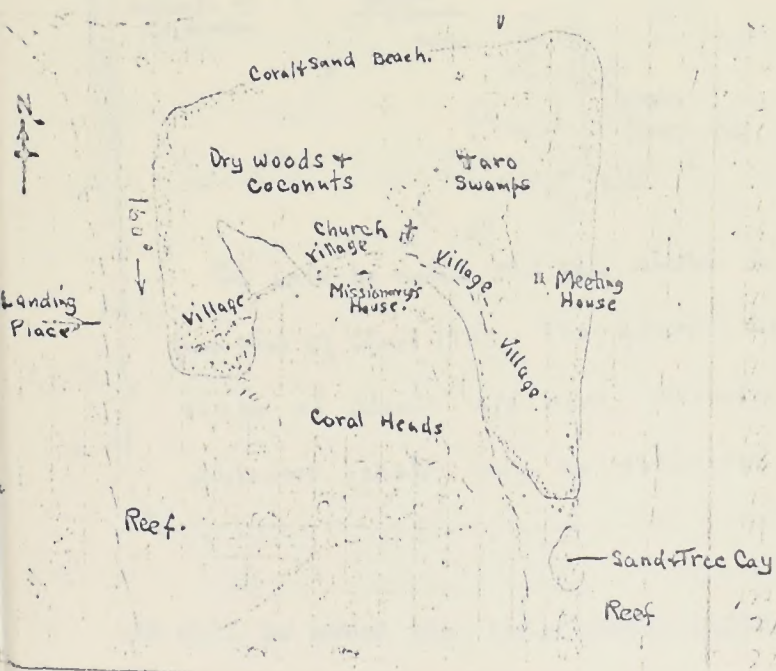 Coral+Sand Beach.
N
Dry woods +
Coconuts
Taro
Swamps
Church
Village
Village
Missionary's
House.
Meeting
House
Landing
Place
Village
Village
Coral Heads
Reef.
Sand+Tree Cay
Reef